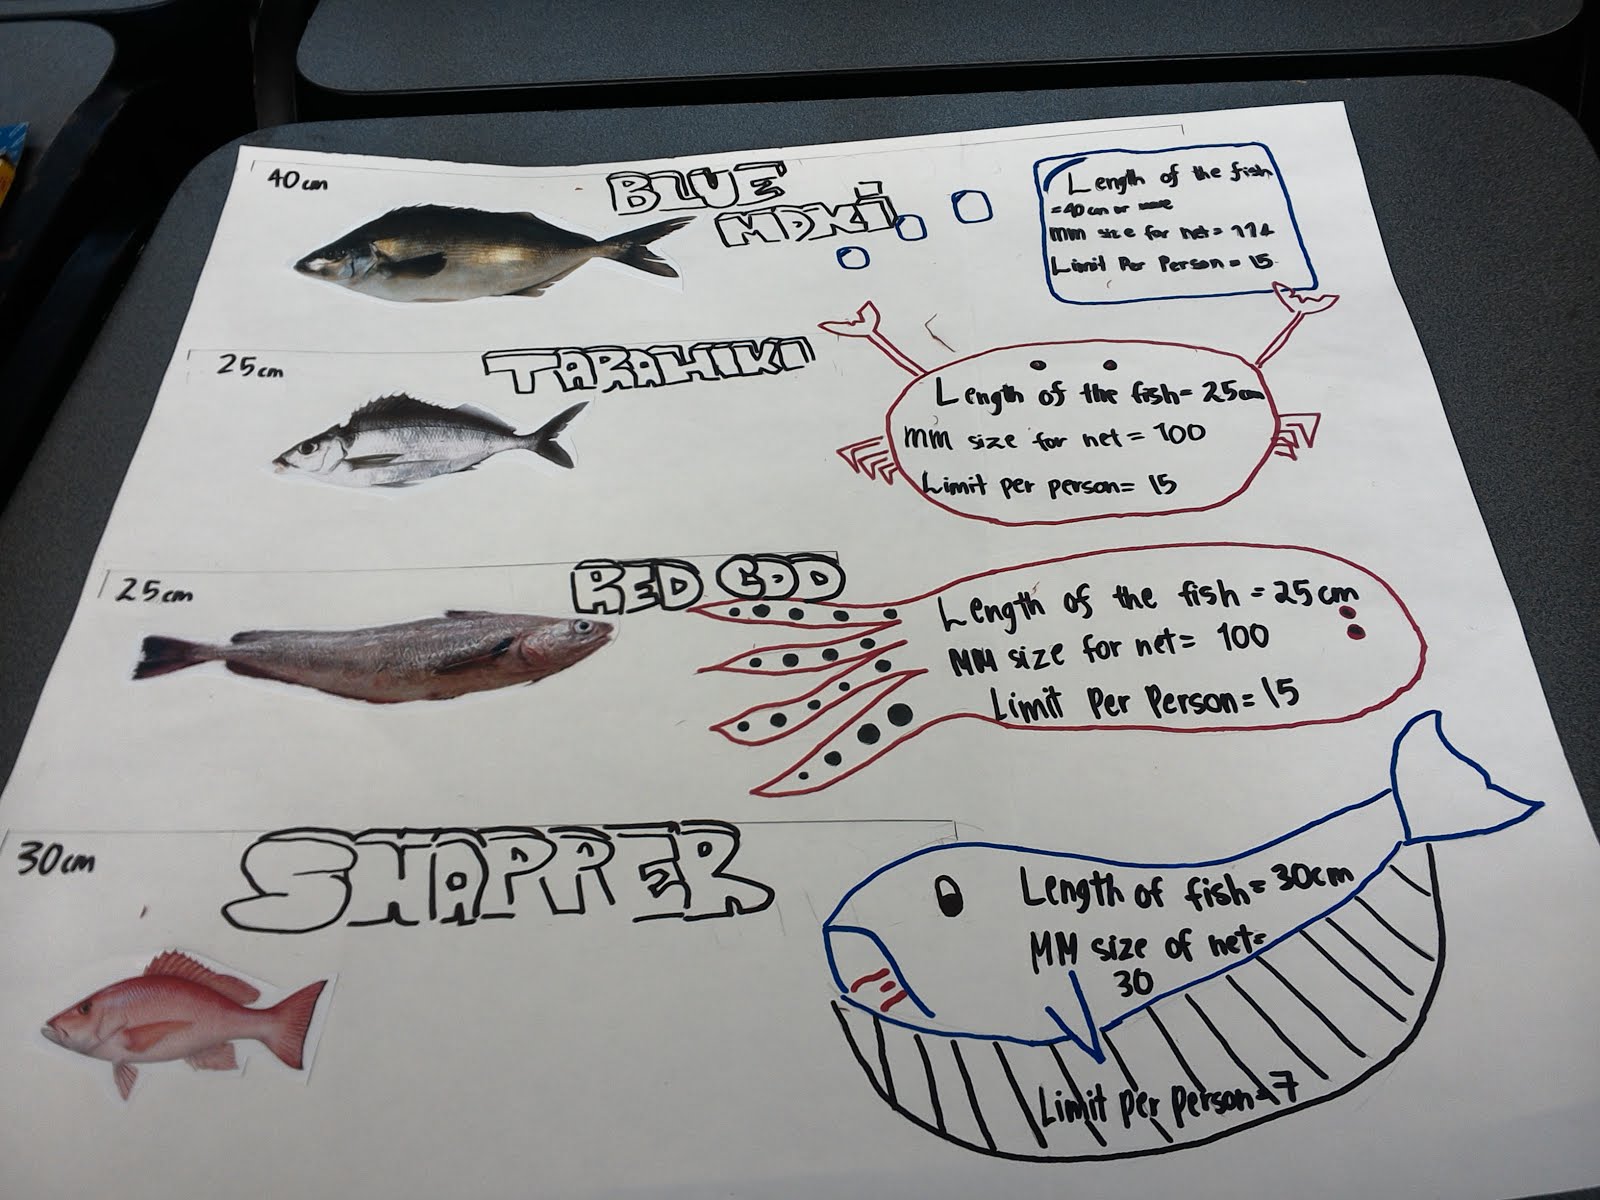 40cm
BLUE
MOKI
Length of the fish
=40cm or more
mm size for net= 114
Limit Per Person = 15
25cm
TARAHIKI
Length of the fish= 25cm
mm size for net= 100
Limit per person= 15
25cm
RED COD
Length of the fish = 25cm
MM size for net= 100
Limit Per Person= 15
30cm
SNAPPER
Length of fish= 30cm
MM size of net=
30
Limit per person=7